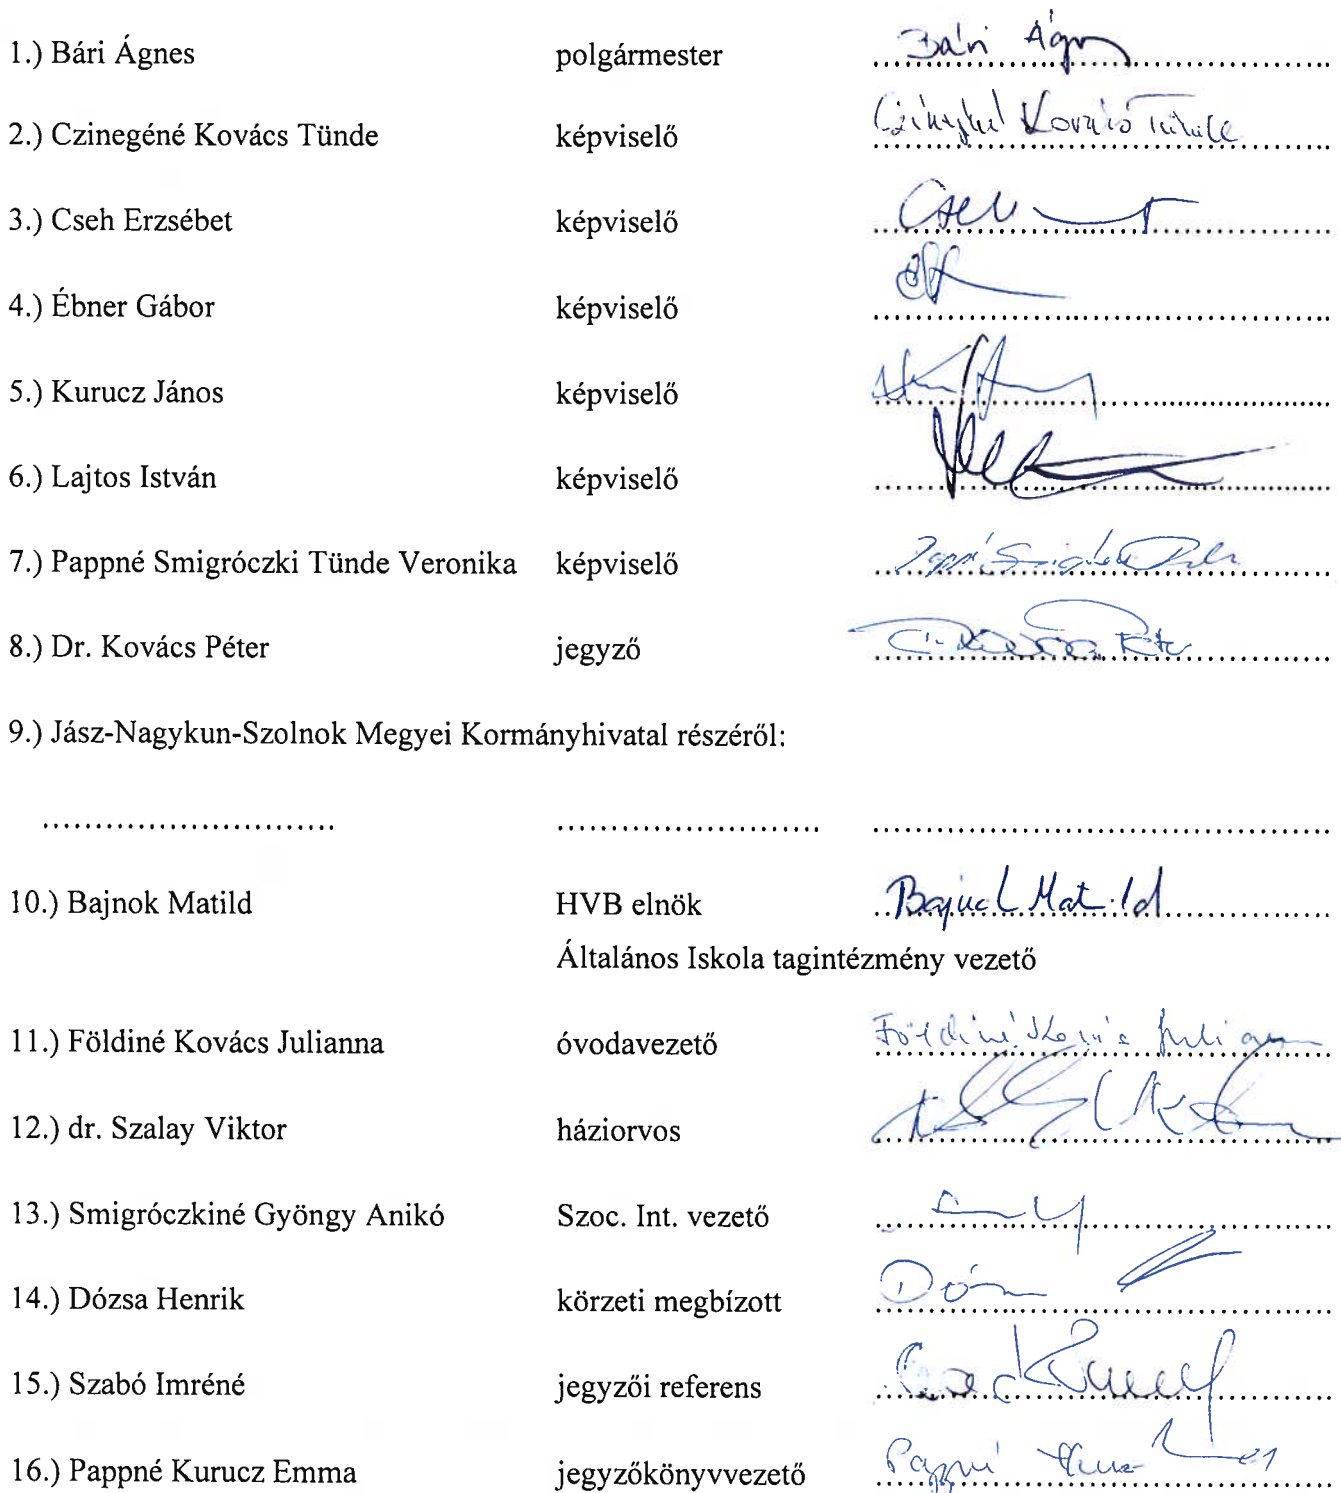 1.) Bári Ágnes polgármester Bári Ágn
2.) Czinegéné Kovács Tünde képviselő Kovács Tünde
3.) Cseh Erzsébet képviselő Cseh
4.) Ébner Gábor képviselő
5.) Kurucz János képviselő
6.) Lajtos István képviselő
7.) Pappné Smigróczki Tünde Veronika képviselő
8.) Dr. Kovács Péter jegyző
9.) Jász-Nagykun-Szolnok Megyei Kormányhivatal részéről:
10.) Bajnok Matild HVB elnök Bajnok Matild
Általános Iskola tagintézmény vezető
11.) Földiné Kovács Julianna óvodavezető Földiné Kovács Julianna
12.) dr. Szalay Viktor háziorvos
13.) Smigróczkiné Gyöngy Anikó Szoc. Int. vezető
14.) Dózsa Henrik körzeti megbízott
15.) Szabó Imréné jegyzői referens
16.) Pappné Kurucz Emma jegyzőkönyvvezető Pappné